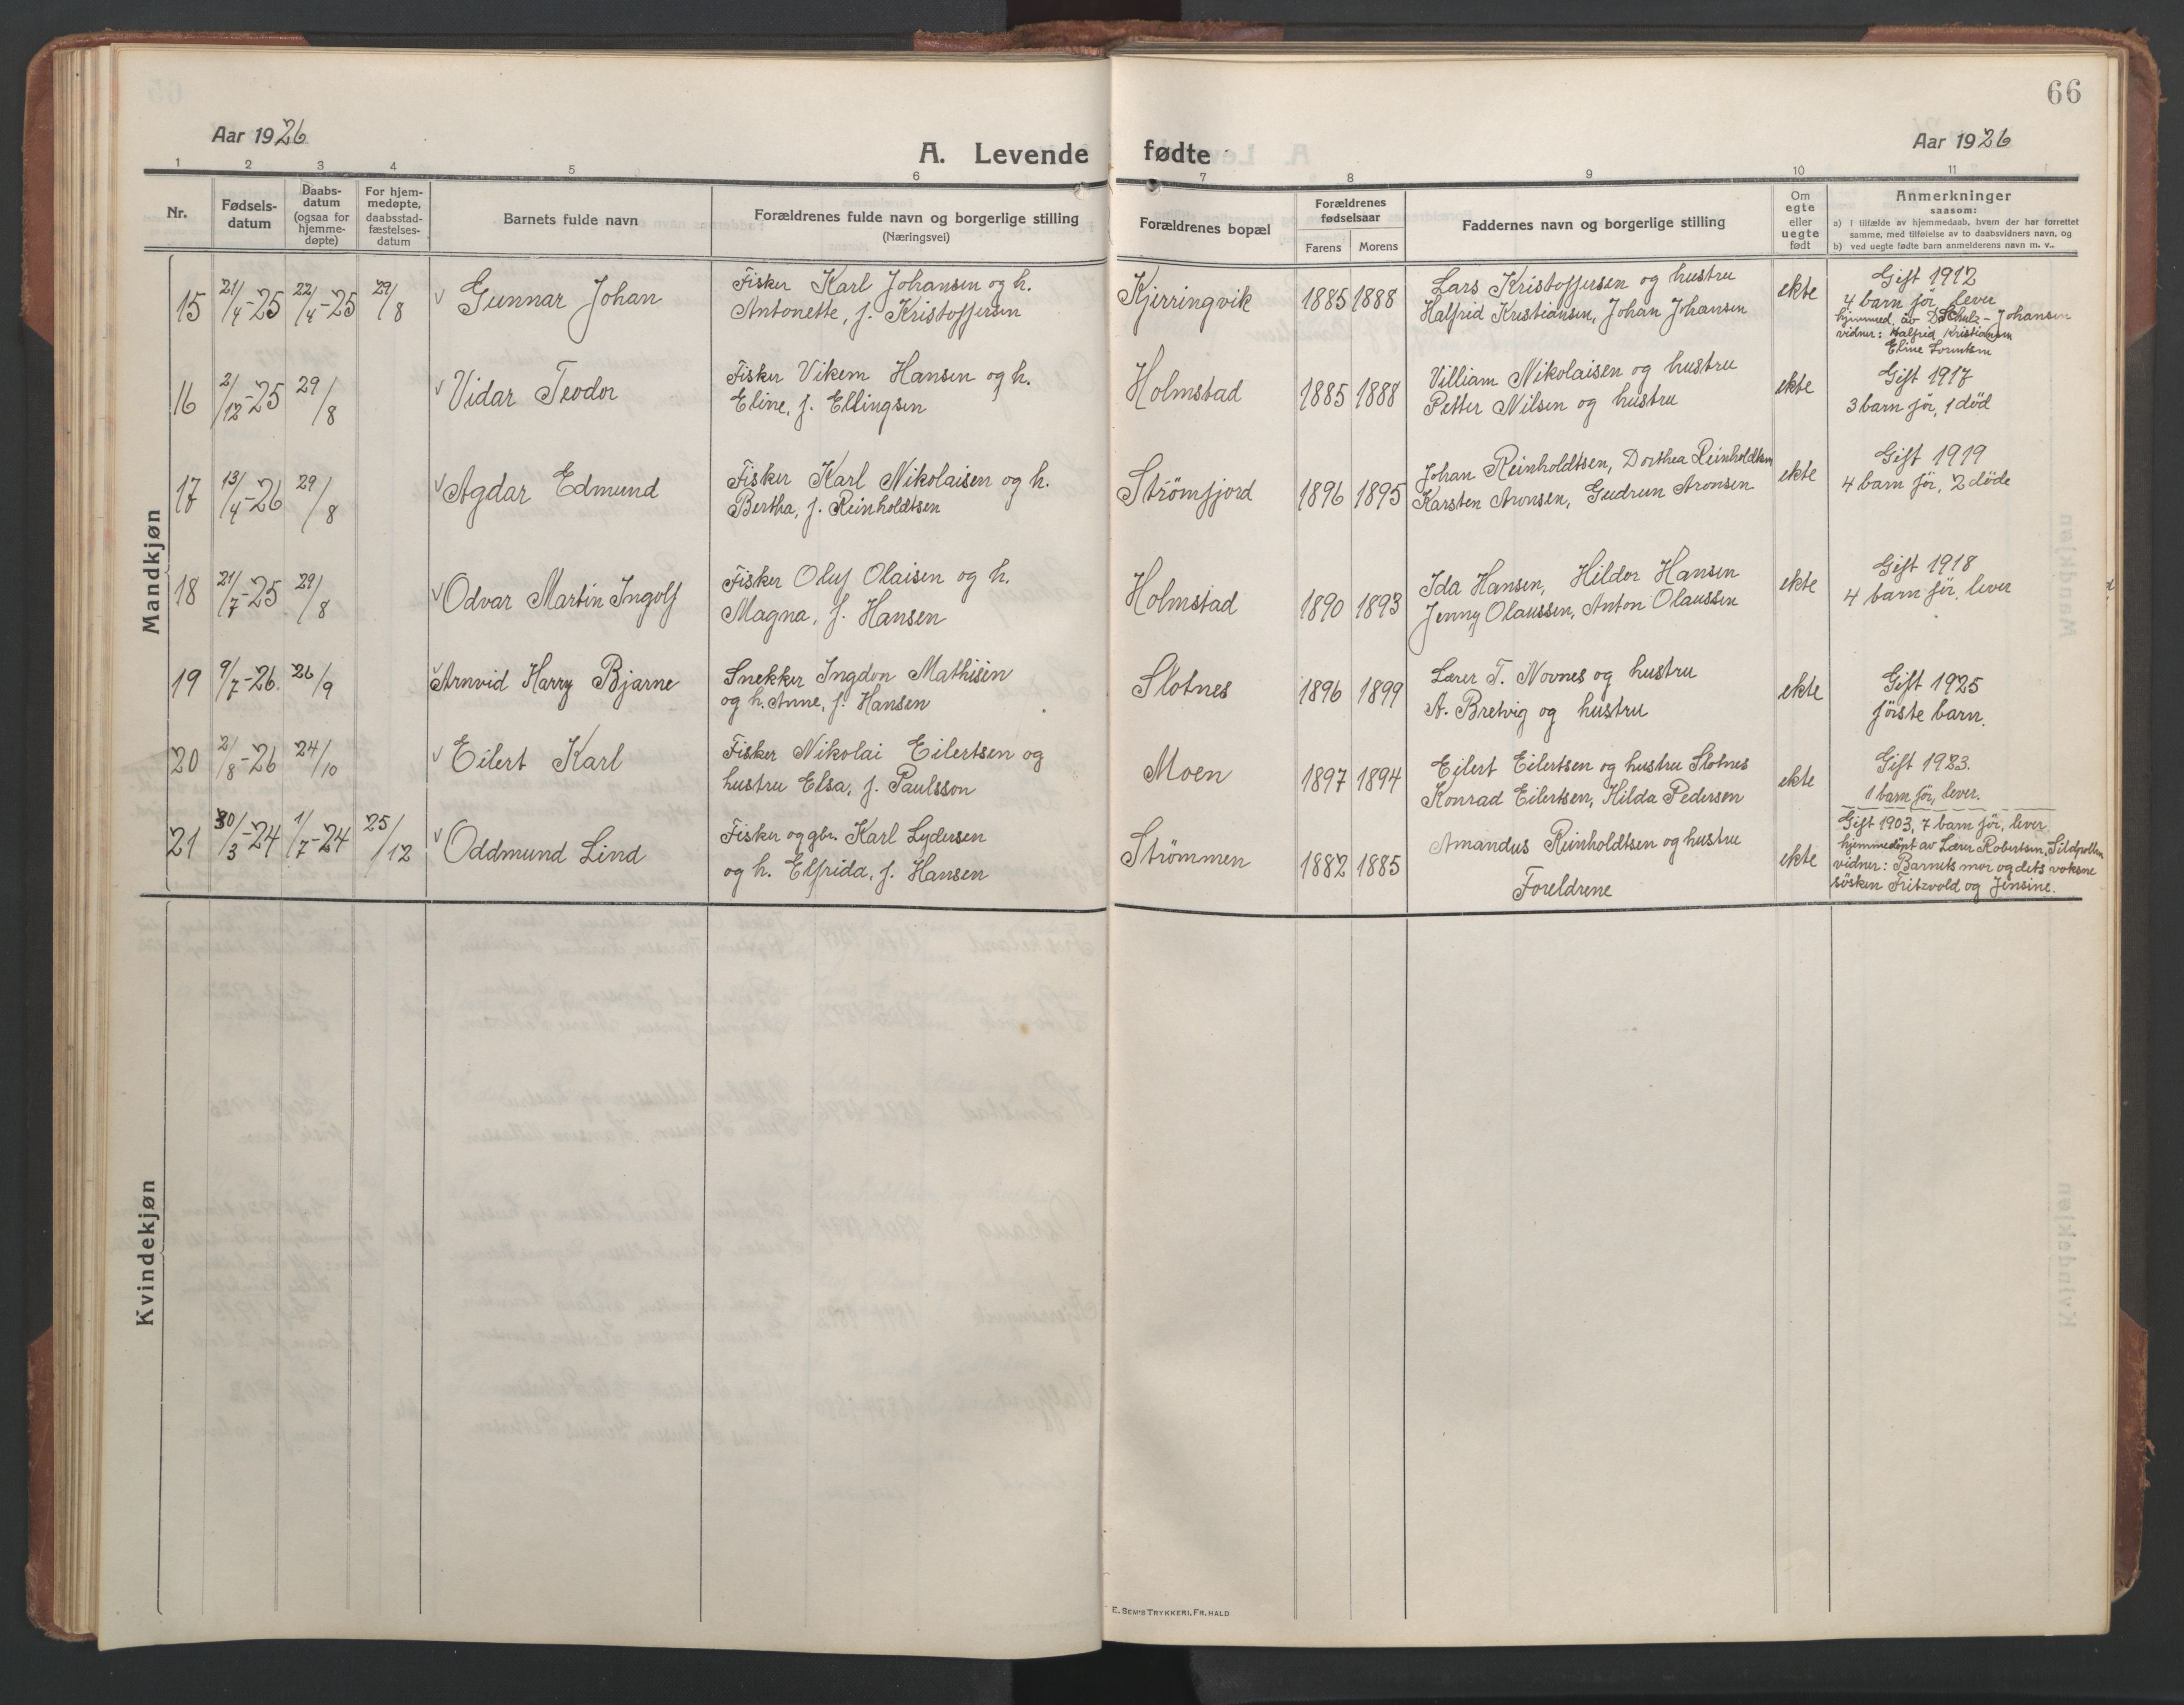 66
Aar 1926
A. Levende fødte
Aar 1926
1 2 3 4 5 6 7 8 9 10 11
Nr.
Fødsels-
datum
Daabs-
datum
(ogsaa for
hjemme-
døpte)
For hjem-
medøpte,
daabsstad-
fæstelses-
datum
Barnets fulde navn
Forældrenes fulde navn og borgerlige stilling
(Næringsvei)
Forældrenes bopæl
Forældrenes
fødselsaar
Farens Morens
Faddernes navn og borgerlige stilling
Om
egte
eller
uegte
født
Anmerkninger
saasom:
a) i tilfælde av hjemmedaab, hvem der har forrettet
samme, med tilføielse av to daabsvidners navn, og
b) ved uegte fødte barn anmelderens navn m. v..
Mandkjøn
15 21/4-25 22/4-25 29/8 Gunnar Johan
Fisker Karl Johansen og h.
Antonette, f. Kristoffersen
Kjerringvik 1885 1888
Lars Kristoffersen og hustru
Halfrid Kristiansen, Johan Johansen
ekte
Gift 1912
4 barn før, lever
hjemmed. av D. Schulz-Johansen
vidner: Halfrid Kristiansen
Eline Lorentsen
16 2/12-25 29/8 Vidar Teodor
Fisker Vikem Hansen og h.
Eline, f. Ellingsen
Holmstad 1885 1888
Villiam Nikolaisen og hustru
Petter Nilsen og hustru
ekte
Gift 1917
3 barn før, 1 död
17 13/4-26 29/8 Agdar Edmund
Fisker Karl Nikolaisen og h.
Bertha, f. Reinholdtsen
Strömfjord 1896 1895
Johan Reinholdtsen, Dorthea Reinholdtsen
Karsten Aronsen, Gudrun Aronsen
ekte
Gift 1919
4 barn før, 2 döde
18 21/7-25 29/8 Odvar Martin Ingolf
Fisker Oluf Olaisen og h.
Magna, f. Hansen
Holmstad 1890 1893
Ida Hansen, Hildor Hansen
Jenny Olaussen, Anton Olaussen
ekte
Gift 1918
4 barn før, lever
19 9/7-26 26/9 Arnvid Harry Bjarne
Snekker Ingdon Mathisen
og h. Anne, f. Hansen
Slotnes 1896 1899
Lærer T. Novnes og hustru
A. Bretvig og hustru
ekte
Gift 1925
første barn.
20 2/8-26 24/10 Eilert Karl
Fisker Nikolai Eilertsen og
hustru Elsa, f. Paulsson
Moen 1897 1894
Ejlert Eilertsen og hustru Slotnes
Konrad Eilertsen, Hilda Pedersen
ekte
Gift 1923.
1 barn før, lever.
21 30/3-24 1/7-24 25/12 Oddmund Lind
Fisker og gbr. Karl Lydersen
og h. Elfrida, f. Hansen
Strömmen 1882 1885
Amandus Reinholdtsen og hustru
Foreldrene
ekte
Gift 1903, 7 barn før, lever
hjemmedöpt av Lærer Robertsen, Sildpollen
vidner: Barnets mor og dets voksne
søsken Fritzvold og Jensine.
Kvindekjøn
E. SEM'S TRYKKERI, FR. HALD